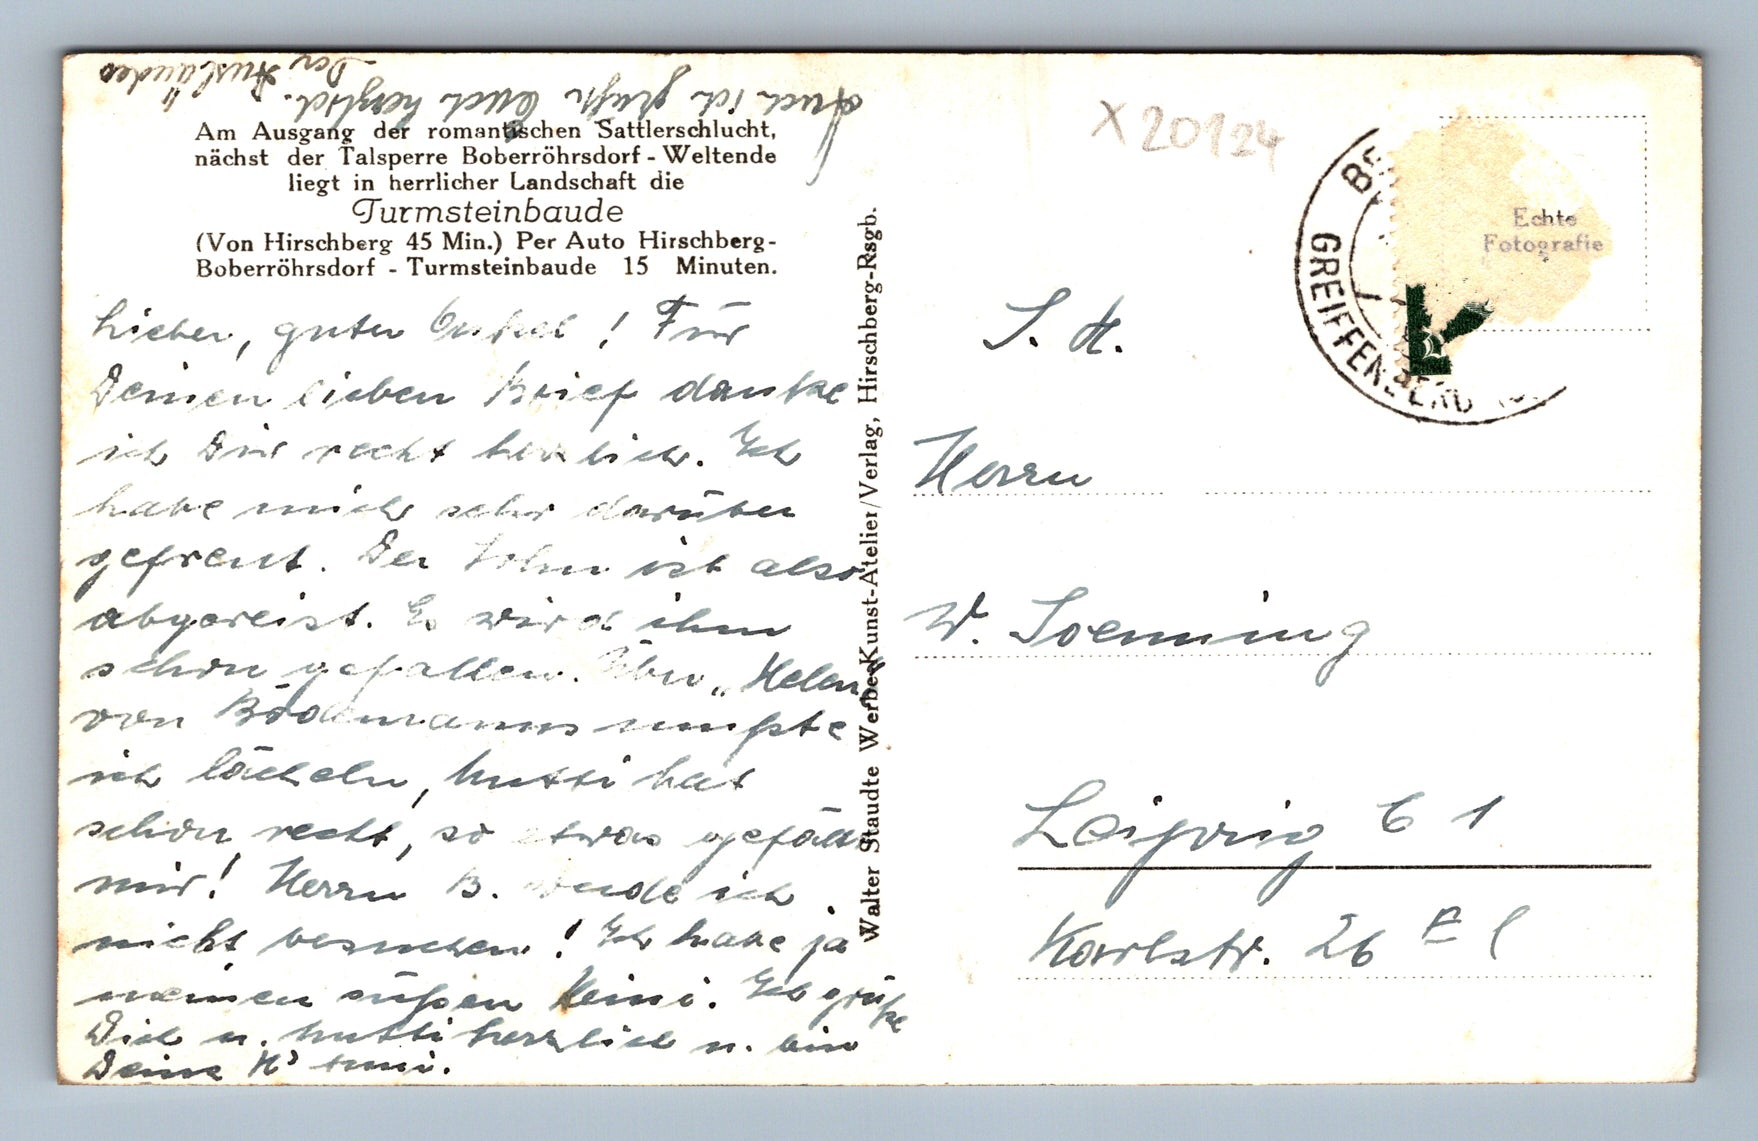 Auch ich grüße Euch herzlich.
Der Ausländer
Am Ausgang der romantischen Sattlerschlucht,
nächst der Talsperre Boberröhrsdorf - Weltende
liegt in herrlicher Landschaft die
Turmsteinbaude
(Von Hirschberg 45 Min.) Per Auto Hirschberg-
Boberröhrsdorf - Turmsteinbaude 15 Minuten.
Lieber, guter Onkel! Für
Deinen lieben Brief danke
ich Dir recht herzlich. Ich
habe mich sehr darüber
gefreut. Der ist also
abgereist. Es wird ihm
schon gefallen. Über „Helen
von Bödemanns mußte
ich lächeln, Mutti hat
schon recht, so etwas gefällt
mir! Herrn B. werde ich
nicht besuchen! Ich habe ja
meinen süßen Heini. Ich grüße
Dich u. Mutti herzlich u. bin
Deine
Walter Staudte Werbe-Kunst-Atelier/Verlag, Hirschberg-Rsgb.
X20124
GREIFFENBERG
Echte
Fotografie
S. H.
Herrn
W. Soenning
Leipzig C 1
Karlstr. 26 E l